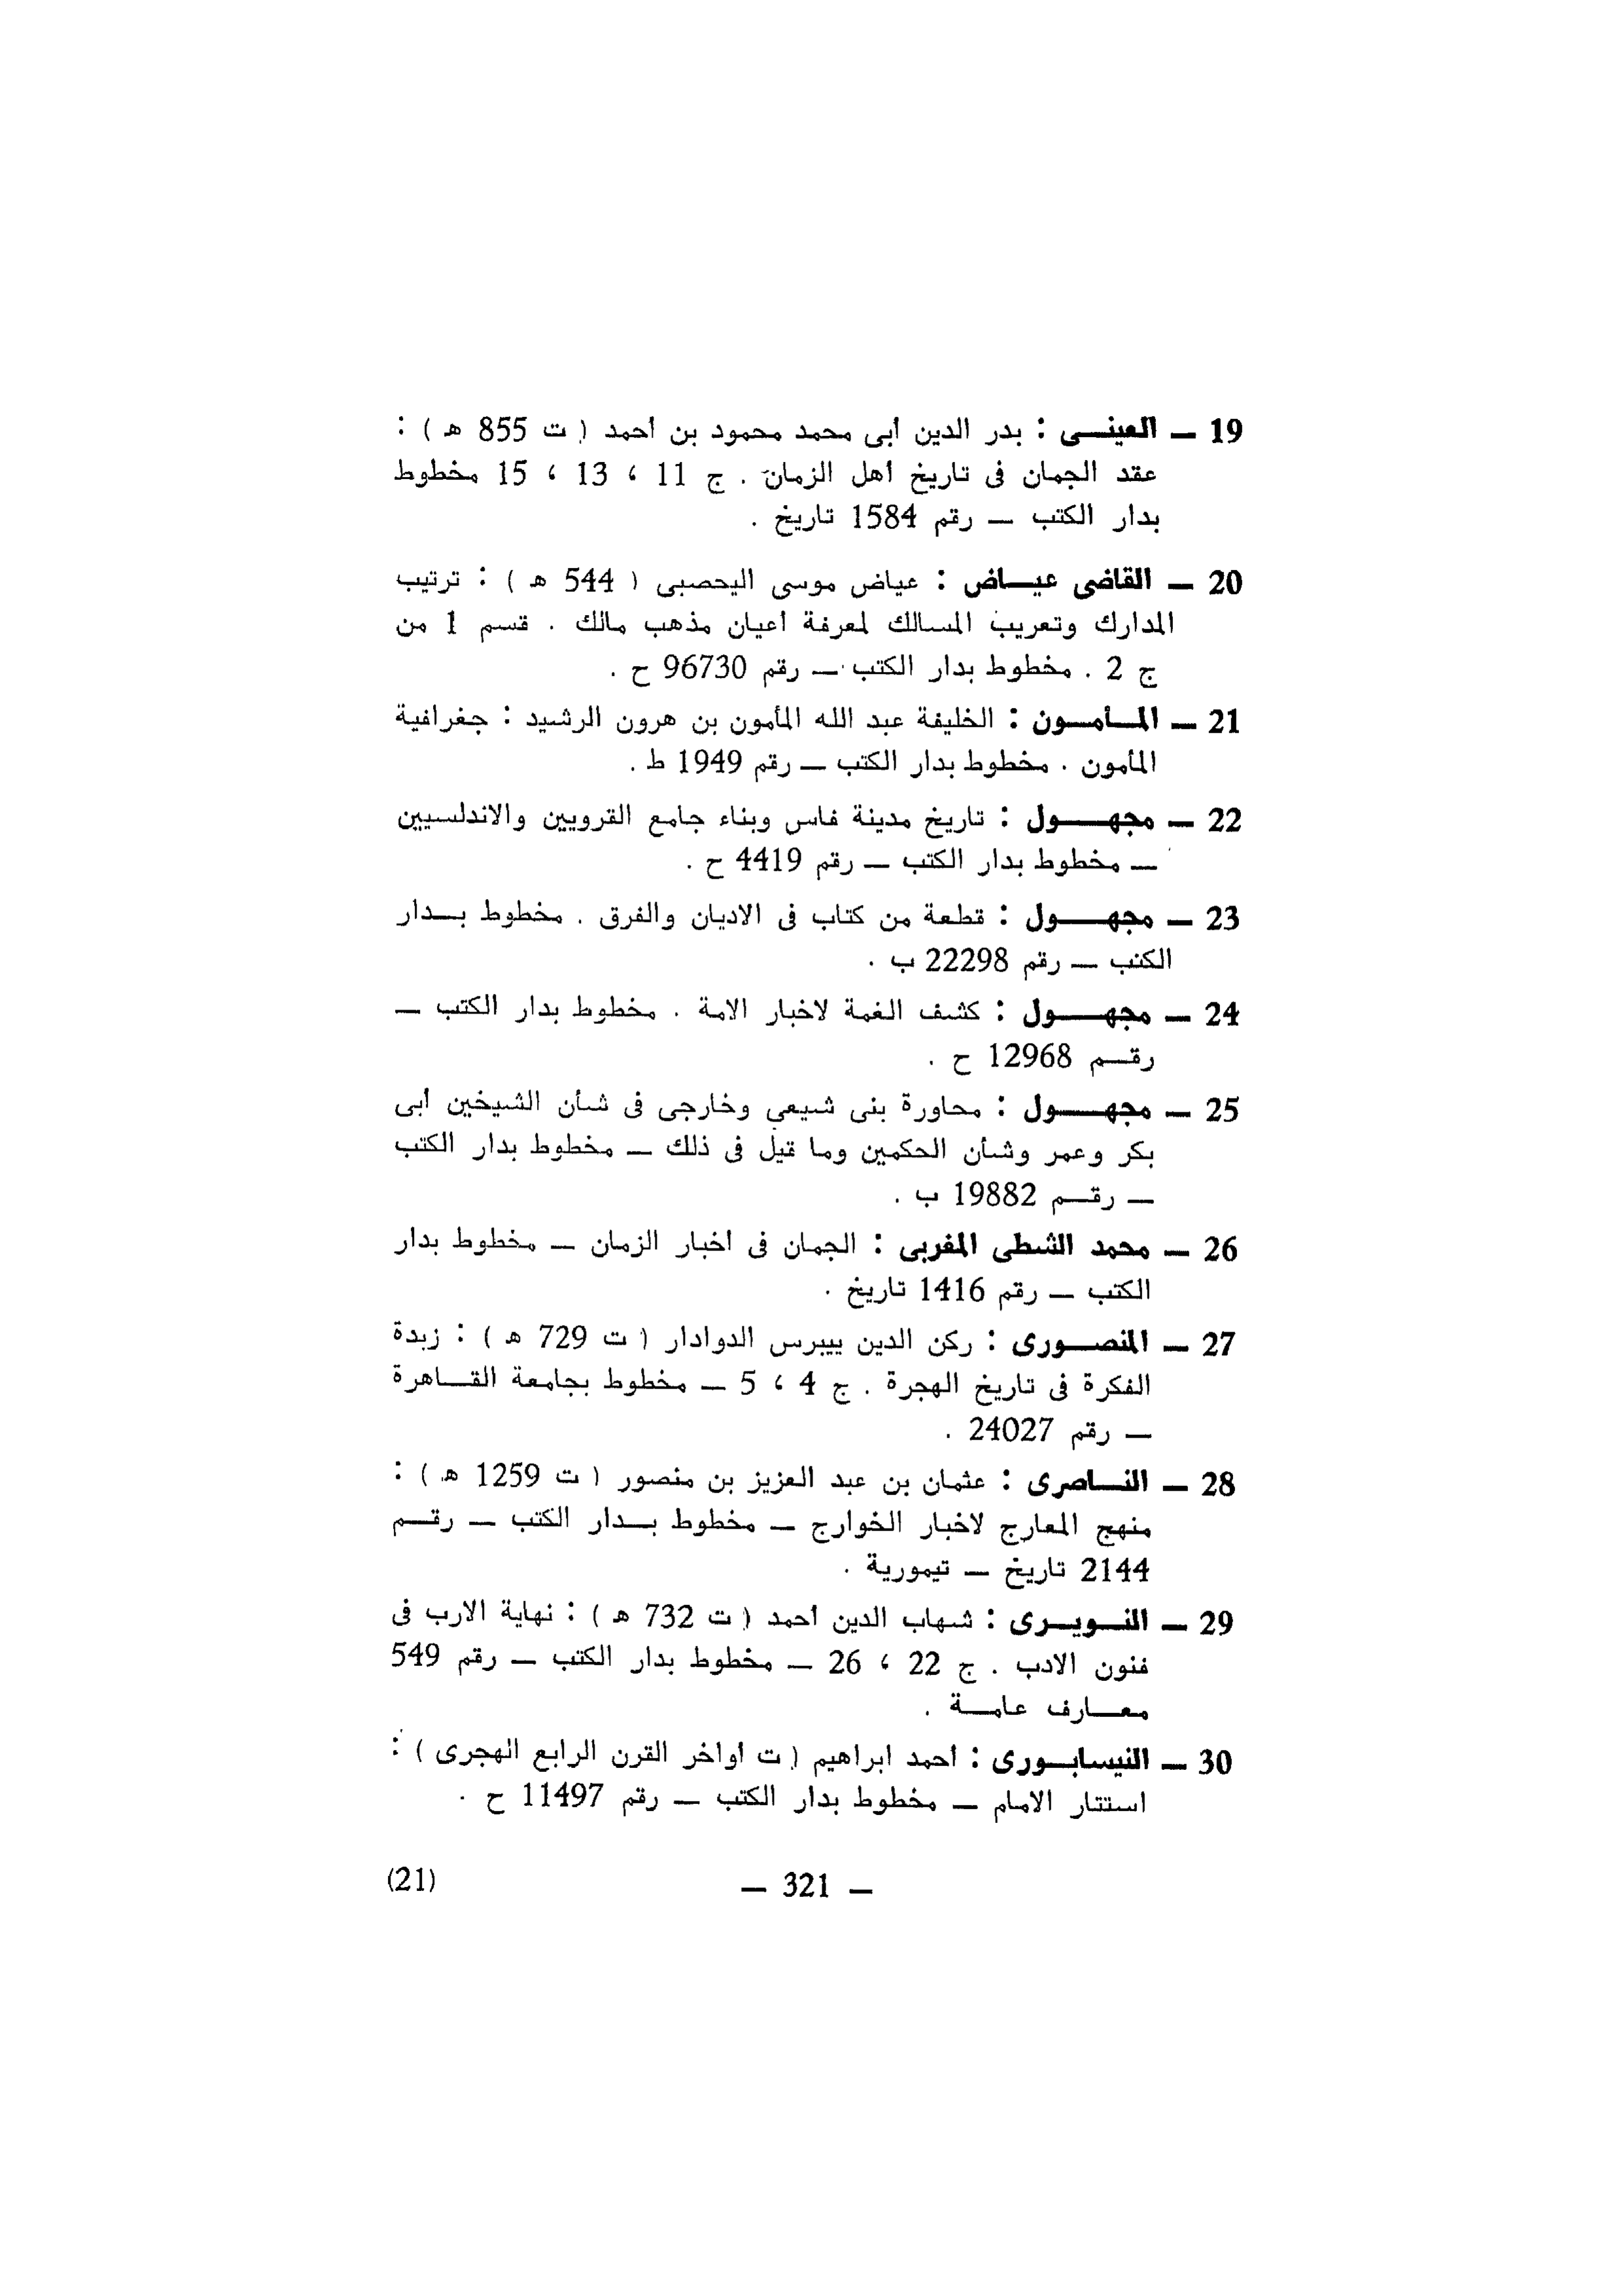 19 — العينـــى : بدر الدين أبى محمد محمود بن أحمد ( ت 855 هـ ) :
عقد الجمان فى تاريخ أهل الزمان . ج 11 ، 13 ، 15 مخطوط
بدار الكتب — رقم 1584 تاريخ .
20 — القاضى عيـــاض : عياض موسى اليحصبى ( 544 هـ ) : ترتيب
المدارك وتعريب المسالك لمعرفة أعيان مذهب مالك . قسم 1 من
ج 2 . مخطوط بدار الكتب — رقم 96730 ح .
21 — المــأمــون : الخليفة عبد الله المأمون بن هرون الرشيد : جغرافية
المأمون . مخطوط بدار الكتب — رقم 1949 ط .
22 — مجهـــــول : تاريخ مدينة فاس وبناء جامع القرويين والاندلسيين
— مخطوط بدار الكتب — رقم 4419 ح .
23 — مجهـــــول : قطعة من كتاب فى الاديان والفرق . مخطوط بـــدار
الكتب — رقم 22298 ب .
24 — مجهـــــول : كشف الغمة لاخبار الامة . مخطوط بدار الكتب —
رقـــم 12968 ح .
25 — مجهـــــول : محاورة بنى شيعي وخارجى فى شأن الشيخين أبى
بكر وعمر وشأن الحكمين وما قيل فى ذلك — مخطوط بدار الكتب
— رقـــم 19882 ب .
26 — محمد الشطى المغربى : الجمان فى أخبار الزمان — مخطوط بدار
الكتب — رقم 1416 تاريخ .
27 — المنصـــورى : ركن الدين بيبرس الدوادار ( ت 729 هـ ) : زبدة
الفكرة فى تاريخ الهجرة . ج 4 ، 5 — مخطوط بجامعة القـــاهرة
— رقم 24027 .
28 — النـــاصرى : عثمان بن عبد العزيز بن منصور ( ت 1259 هـ ) :
منهج المعارج لاخبار الخوارج — مخطوط بـــدار الكتب — رقـــم
2144 تاريخ — تيمورية .
29 — النـــويـــرى : شهاب الدين أحمد ( ت 732 هـ ) : نهاية الارب فى
فنون الادب . ج 22 ، 26 — مخطوط بدار الكتب — رقم 549
معـــارف عامـــة .
30 — النيسابـــورى : أحمد ابراهيم ( ت أواخر القرن الرابع الهجرى ) :
استتار الامام — مخطوط بدار الكتب — رقم 11497 ح .
— 321 —
(21)